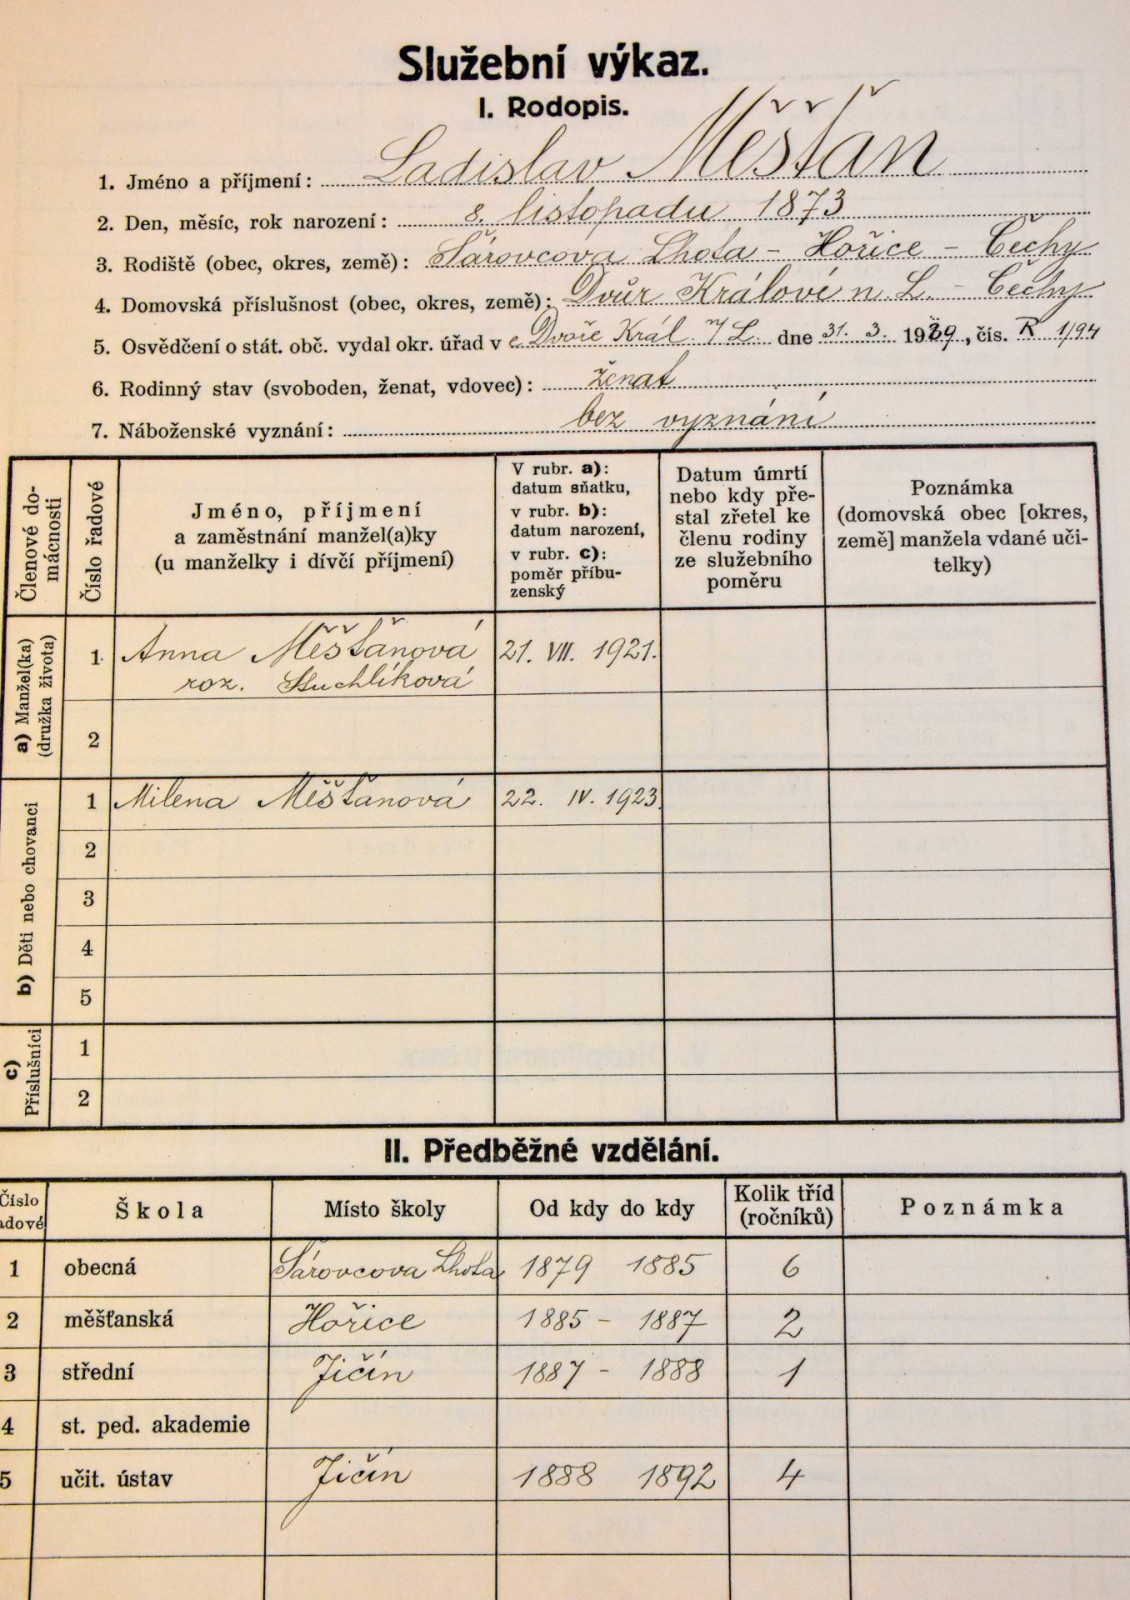 Služební výkaz.
I. Rodopis.
1. Jméno a příjmení: Ladislav Měšťan
2. Den, měsíc, rok narození: 8. listopadu 1873
3. Rodiště (obec, okres, země): Šárovcova Lhota - Hořice - Čechy
4. Domovská příslušnost (obec, okres, země): Dvůr Králové n. L. - Čechy
5. Osvědčení o stát. obč. vydal okr. úřad v Dvoře Král. n/L. dne 31. 3. 1939, čís. R 1/94
6. Rodinný stav (svoboden, ženat, vdovec): ženat
7. Náboženské vyznání: bez vyznání
Členové do-
mácnosti
Číslo řadové
Jméno, příjmení
a zaměstnání manžel(a)ky
(u manželky i dívčí příjmení)
V rubr. a):
datum sňatku,
v rubr. b):
datum narození,
v rubr. c):
poměr příbu-
zenský
Datum úmrtí
nebo kdy pře-
stal zřetel ke
členu rodiny
ze služebního
poměru
Poznámka
(domovská obec [okres,
země] manžela vdané uči-
telky)
a) Manžel(ka)
(družka života)
1 Anna Měšťanová 21. VII. 1921.
roz. Stuchlíková
2
b) Děti nebo chovanci
1 Milena Měšťanová 22. IV. 1923.
2
3
4
5
c)
Příslušníci
1
2
II. Předběžné vzdělání.
Číslo
adové
Škola
Místo školy
Od kdy do kdy
Kolik tříd
(ročníků)
Poznámka
1 obecná Šárovcova Lhota 1879 1885 6
2 měšťanská Hořice 1885 - 1887 2
3 střední Jičín 1887 - 1888 1
4 st. ped. akademie
5 učit. ústav Jičín 1888 1892 4